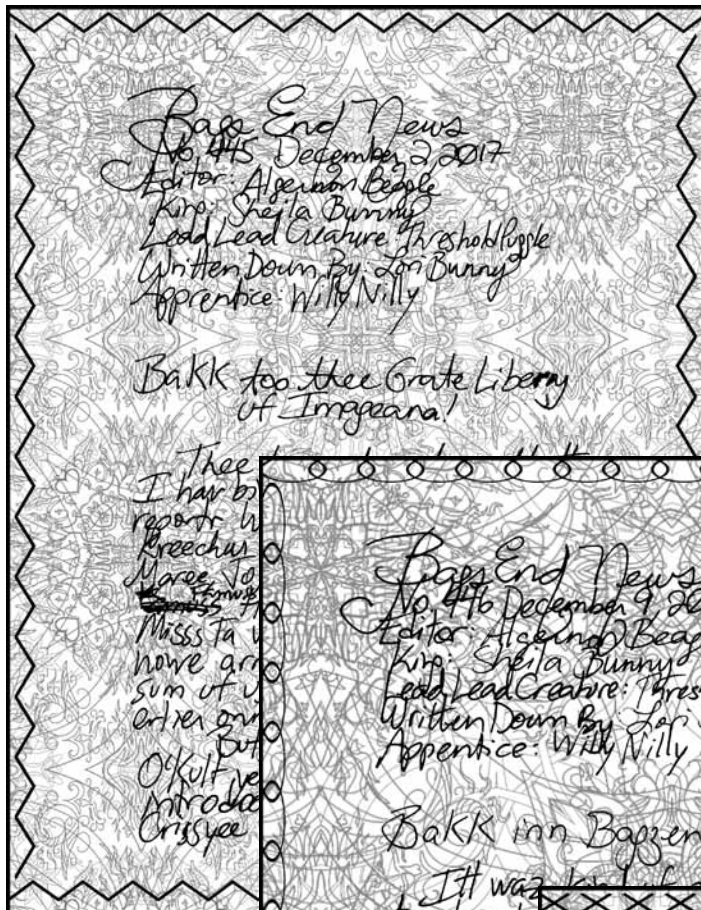 Bags End News
No. 445 December 2, 2017
Editor: Algernon Beagle
King: Sheila Bunny
Lead Lead Creature: Threshold Puzzle
Written Down By: Lori Bunny
Apprentice: Willy Nilly
Bakk too thee Grate Liberry
uf Imageana!
Thee
I hav b
reportr
Kreechus
Maree Jo
Misss Ta
howe arr
sum uf
erlier onn
But
O'Kult ve
introdoo
Crissyee
Bags End News
No. 446 December 9, 20
Editor: Algernon Beag
King: Sheila Bunny
Lead Lead Creature: Thres
Written Down By: Lori
Apprentice: Willy Nilly
Bakk inn Bagzen
Itt waz kind uf